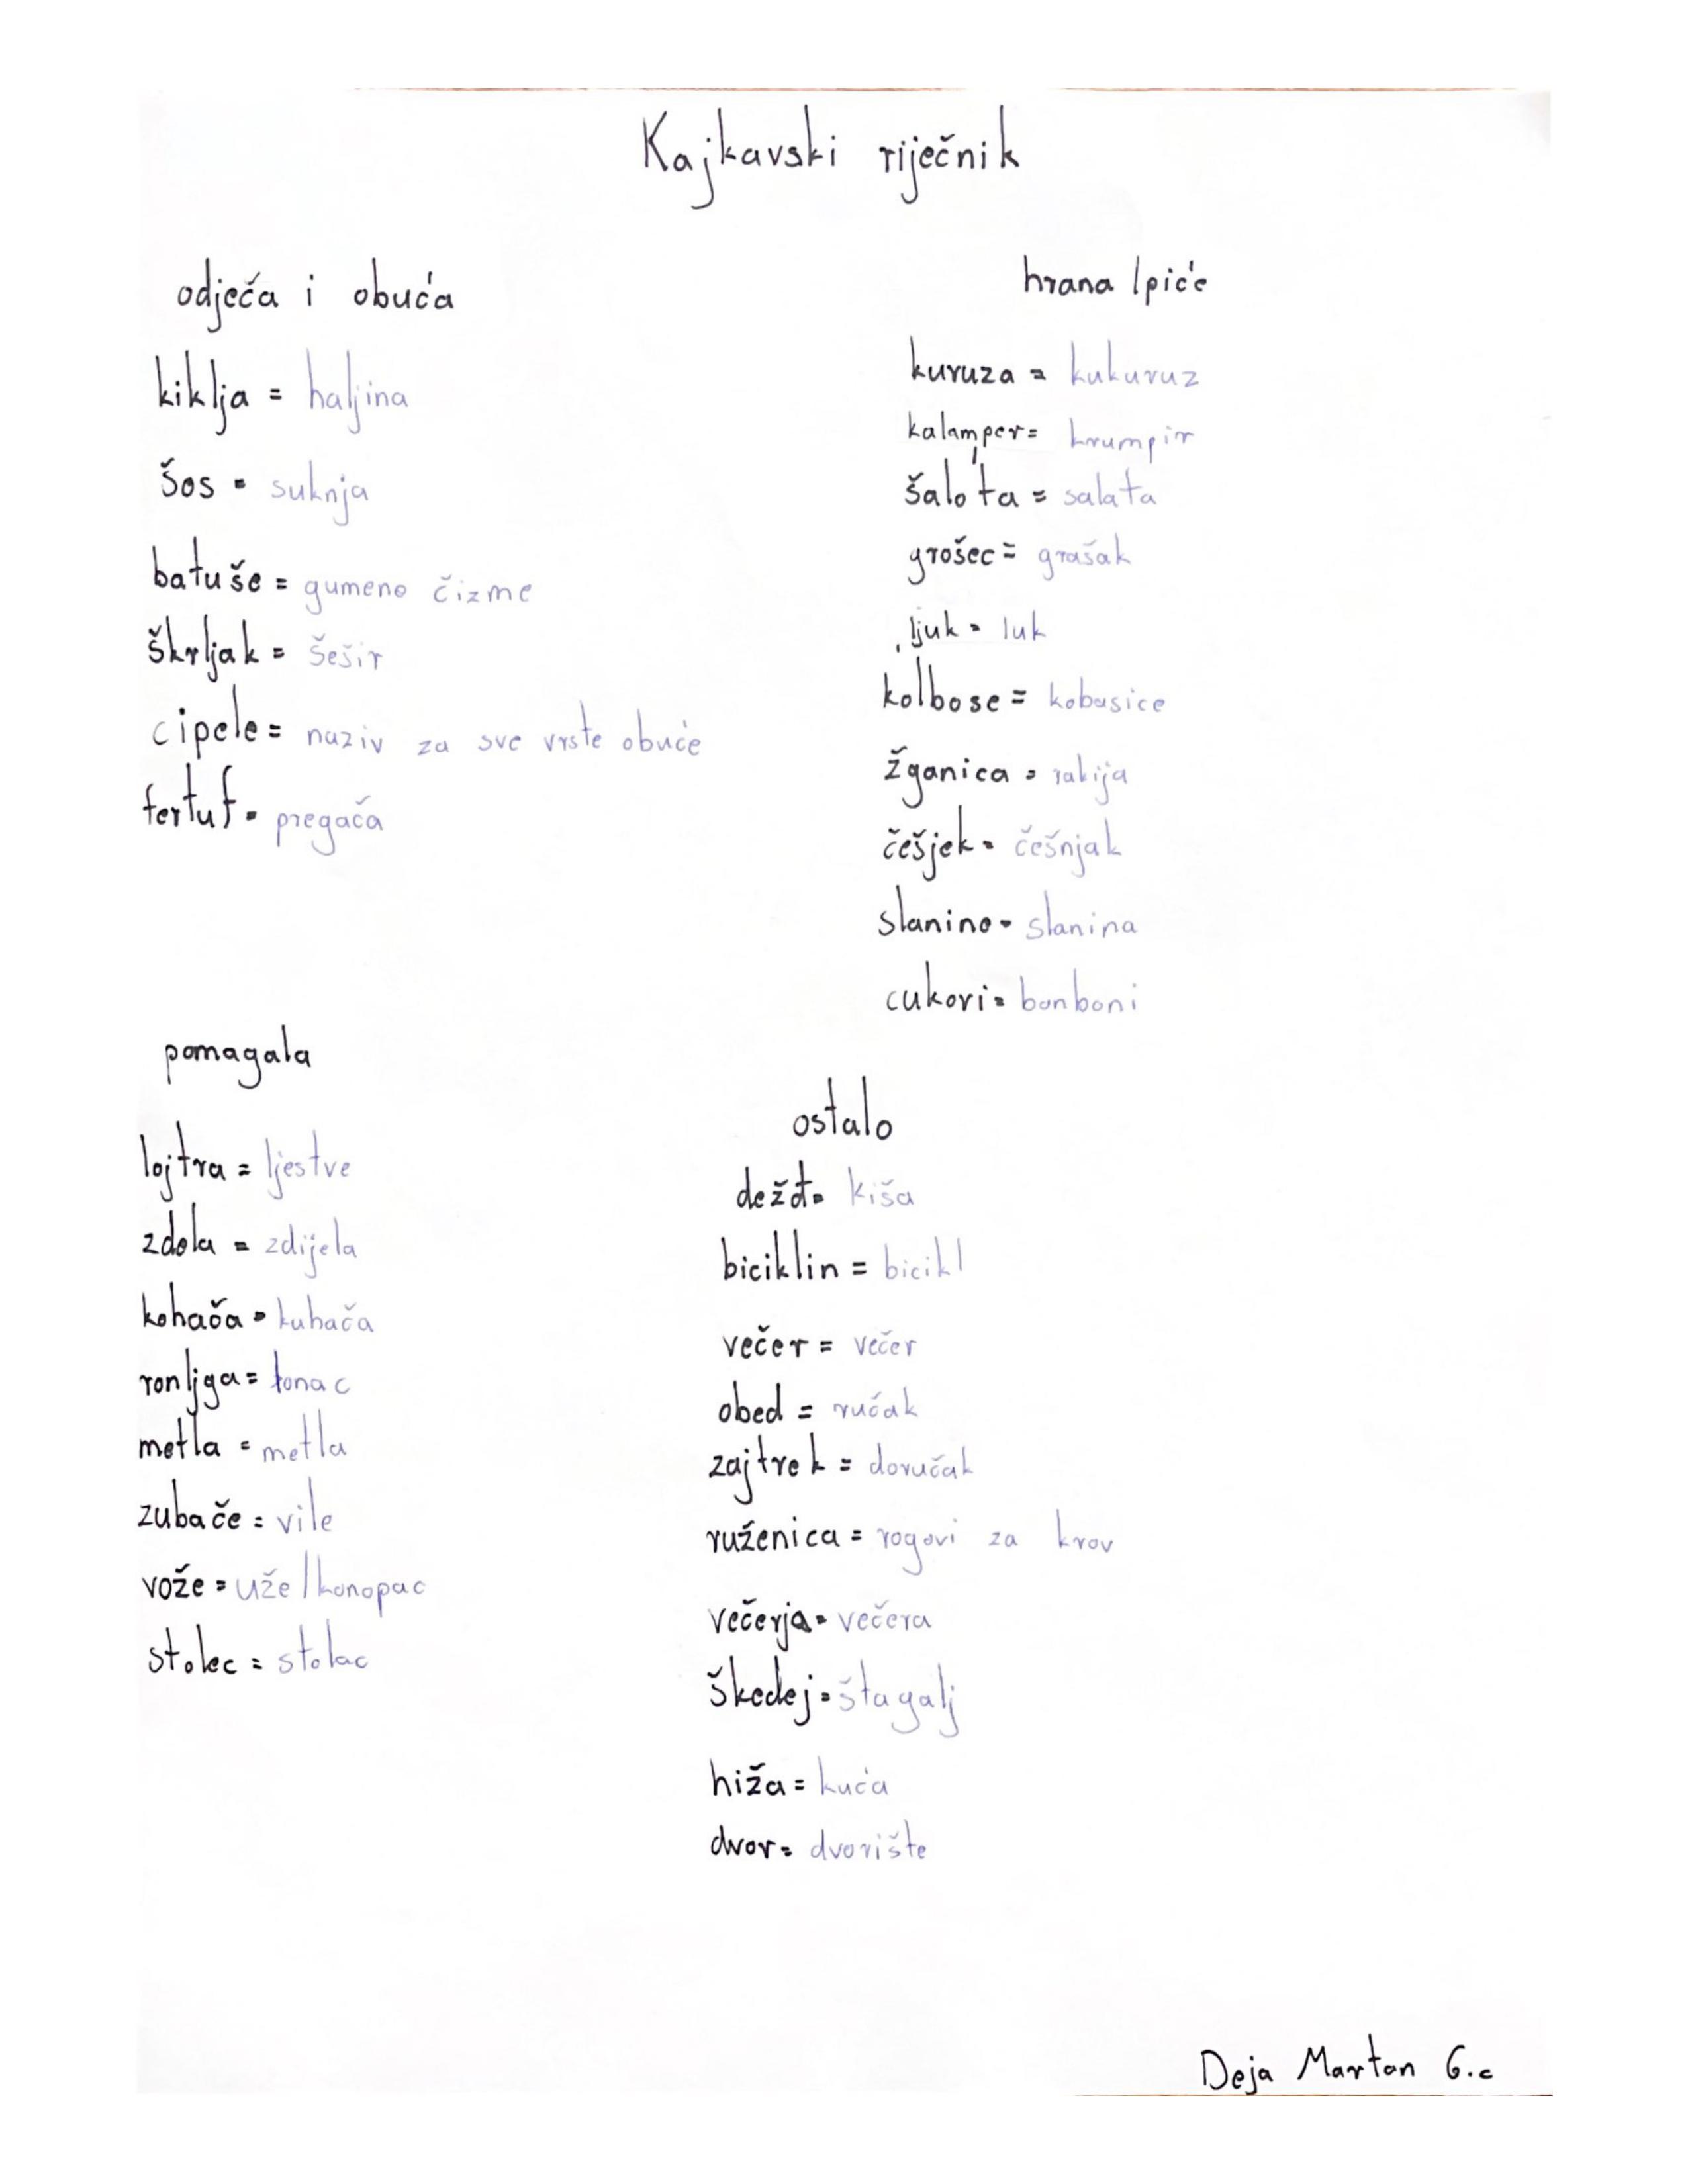 Kajkavski riječnik
odječa i obuća
kiklja = haljina
šos = suknja
batuše = gumeno čizme
škrljak = šešir
cipele = naziv za sve vrste obuće
fertuf = pregača
hrana / piće
kuruza = kukuruz
kalamper = krumpir
šalota = salata
grošec = grašak
ljuk = luk
kolbose = kobasice
žganica = rakija
češjek = češnjak
slanino = slanina
cukori = bonboni
pomagala
lojtra = ljestve
zdela = zdijela
kohača = kuhača
ronljga = lonac
metla = metla
zubače = vile
vože = uže / konopac
stolec = stolac
ostalo
dežđ = kiša
biciklin = bicikl
večer = večer
obed = ručak
zajtrek = doručak
ruženica = rogovi za krov
večerja = večera
škedej = štagalj
hiža = kuća
dvor = dvorište
Deja Martan 6.c